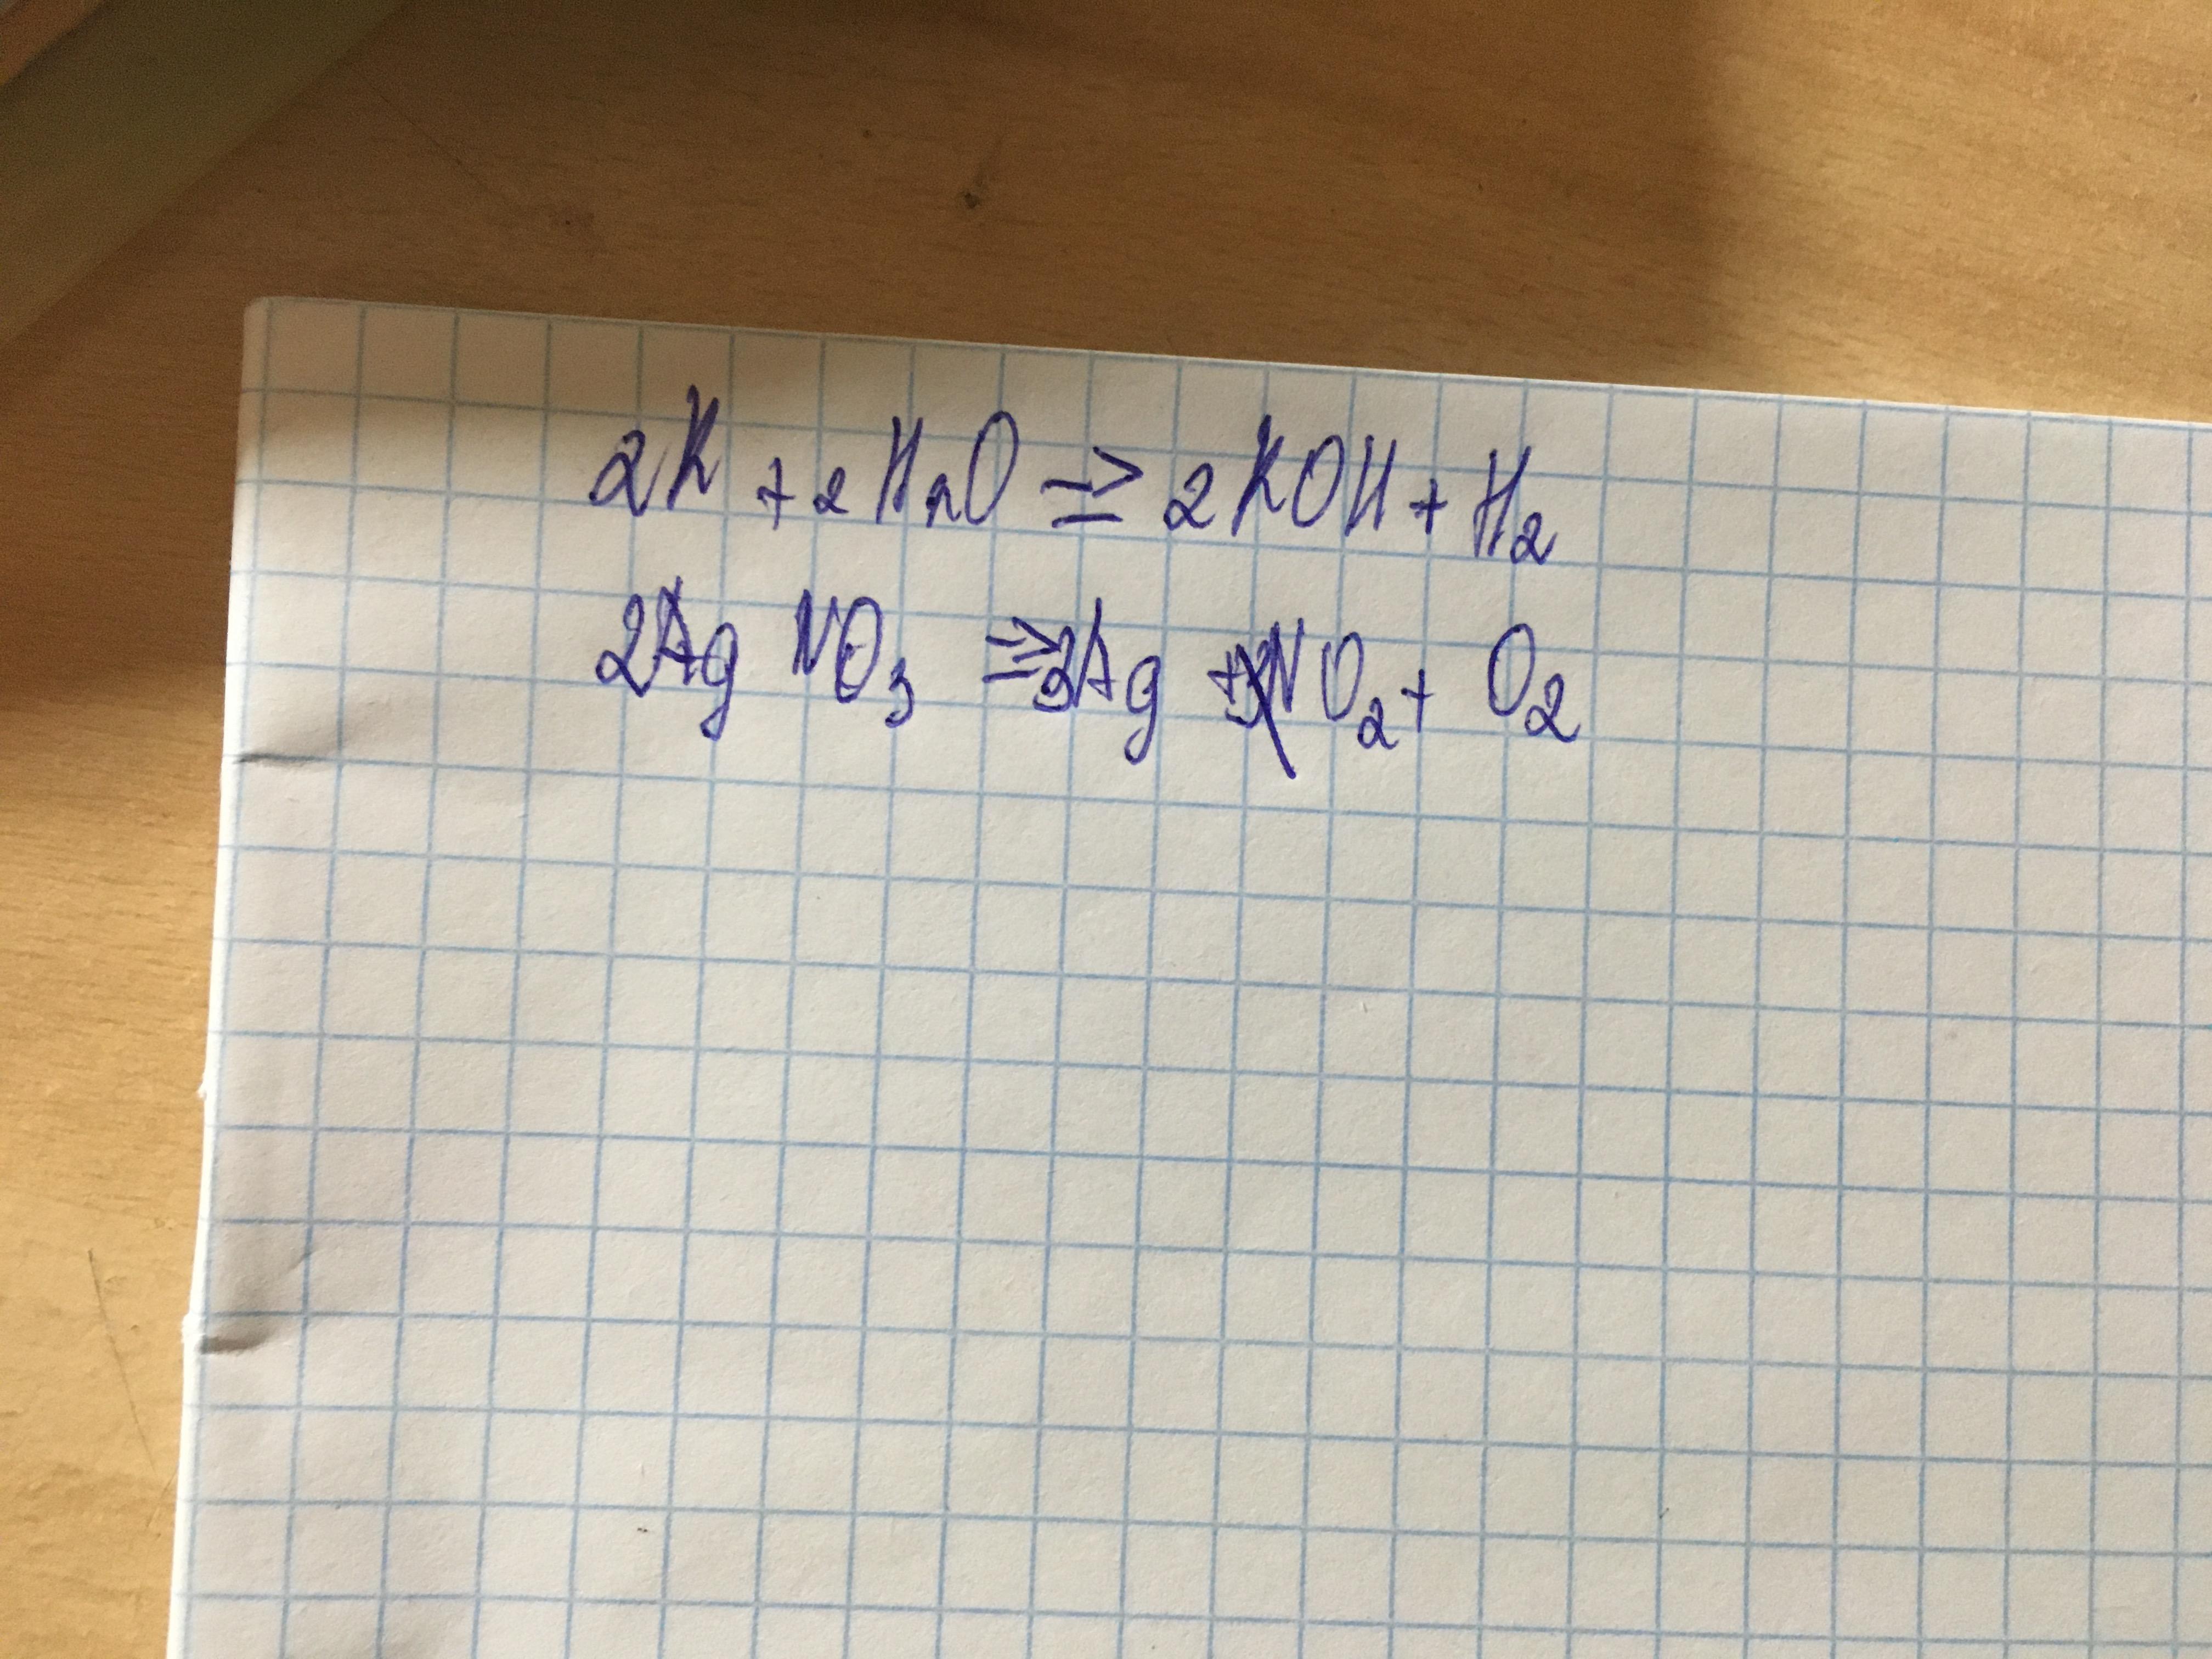 2K + 2H₂O => 2KOH + H₂
2AgNO₃ => Ag + NO₂ + O₂